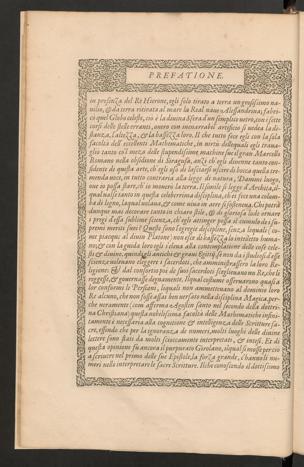 PREFATIONE.
in presenza del Re Hierone, egli solo tirato a terra un grossissimo na-
uilio, & da terra ritirata al mare la Real naue Alessandrina; fabri-
cò quel Globo celeste, ciò è la diuina Sfera d'un semplice uetro, con i sette
corsi delle stelle erranti, entro con inenarrabil artificio si uedea la di-
stanza, l'altezza, & la bassezza loro. Il che tutto fece egli con la sola
facultà dell' eccellenti Mathematiche, in uertù dellequali egli traua-
gliò tanto con mezo delle stupendissime machine sue il gran Marcello
Romano nella obsidione di Siragusa, anzi ch'egli diuenne tanto con-
fidente di questa arte, ch'egli usò de lasciarsi uscire di bocca questa tre-
menda uoce, in tutto contraria alla legge di natura, Dammi luogo,
oue io possa stare, ch'io mouerò la terra. Il simile si legge d'Archita, il-
qual nasce tanto in questa celeberrima disciplina, ch'ei fece una colum-
ba di legno, laqual uolaua, & come uiua in aere si sosteneua. Chi potrà
dunque mai decorare tanto in chiaro stile, & di generose lode ornare
i pregi d'essa sublime scienza, ch'egli attinger possa al cumulo de i su-
premi meriti suoi? Queste sono l'egregie discipline, senza lequali (co-
me piacque al diuin Platone) non esce da bassezza lo intelletto huma-
no, & con la guida loro egli s'eleua alla contemplatione delle cose cele-
sti & diuine, quindi gli antichi & gran Egitij, se non da i studiosi d'esse
scienze uoleuano eleggere i sacerdoti, che amministrassero la loro Re-
ligione: & dal consortio poi de suoi sacerdoti sceglieuano un Re, che li
reggesse, & gouernasse degnamente, il qual costume osseruarono quasi a
lor conformi le Persiani, liquali non ammetteuano al dominio loro
Re alcuno, che non fosse assai ben uersato nella disciplina Magica, per-
che ueramente (com' afferma Agostin santo nel secondo della dottri-
na Christiana) questa nobilissima facultà delle Mathematiche infini-
tamente è necessaria alla cognitione & intelligenza delle Scritture sa-
cre, essendo che per la ignoranza de numeri, molti luoghi delle diuine
lettere sono stati da molti sciocccamente interpretati, & intesi. Et di
questa opinione fù ancora il purpurato Girolamo, ilqual si mosse perciò
a scriuere nel primo delle sue Epistole, la forza grande, c'hanno li nu-
meri nello interpretare le sacre Scritture. Ilche conoscendo il dottissimo